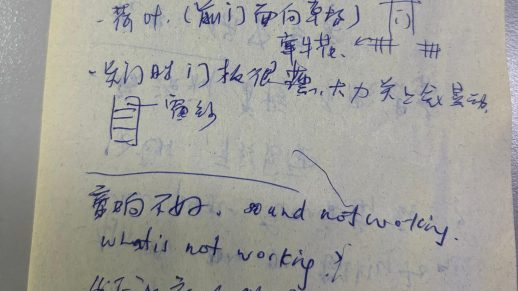 - 荷叶.(前门面向草坪)
牵牛花.
- 关门时门板很薄.大力关上会
窗纱
音响不好. sound not working.
what is not working?